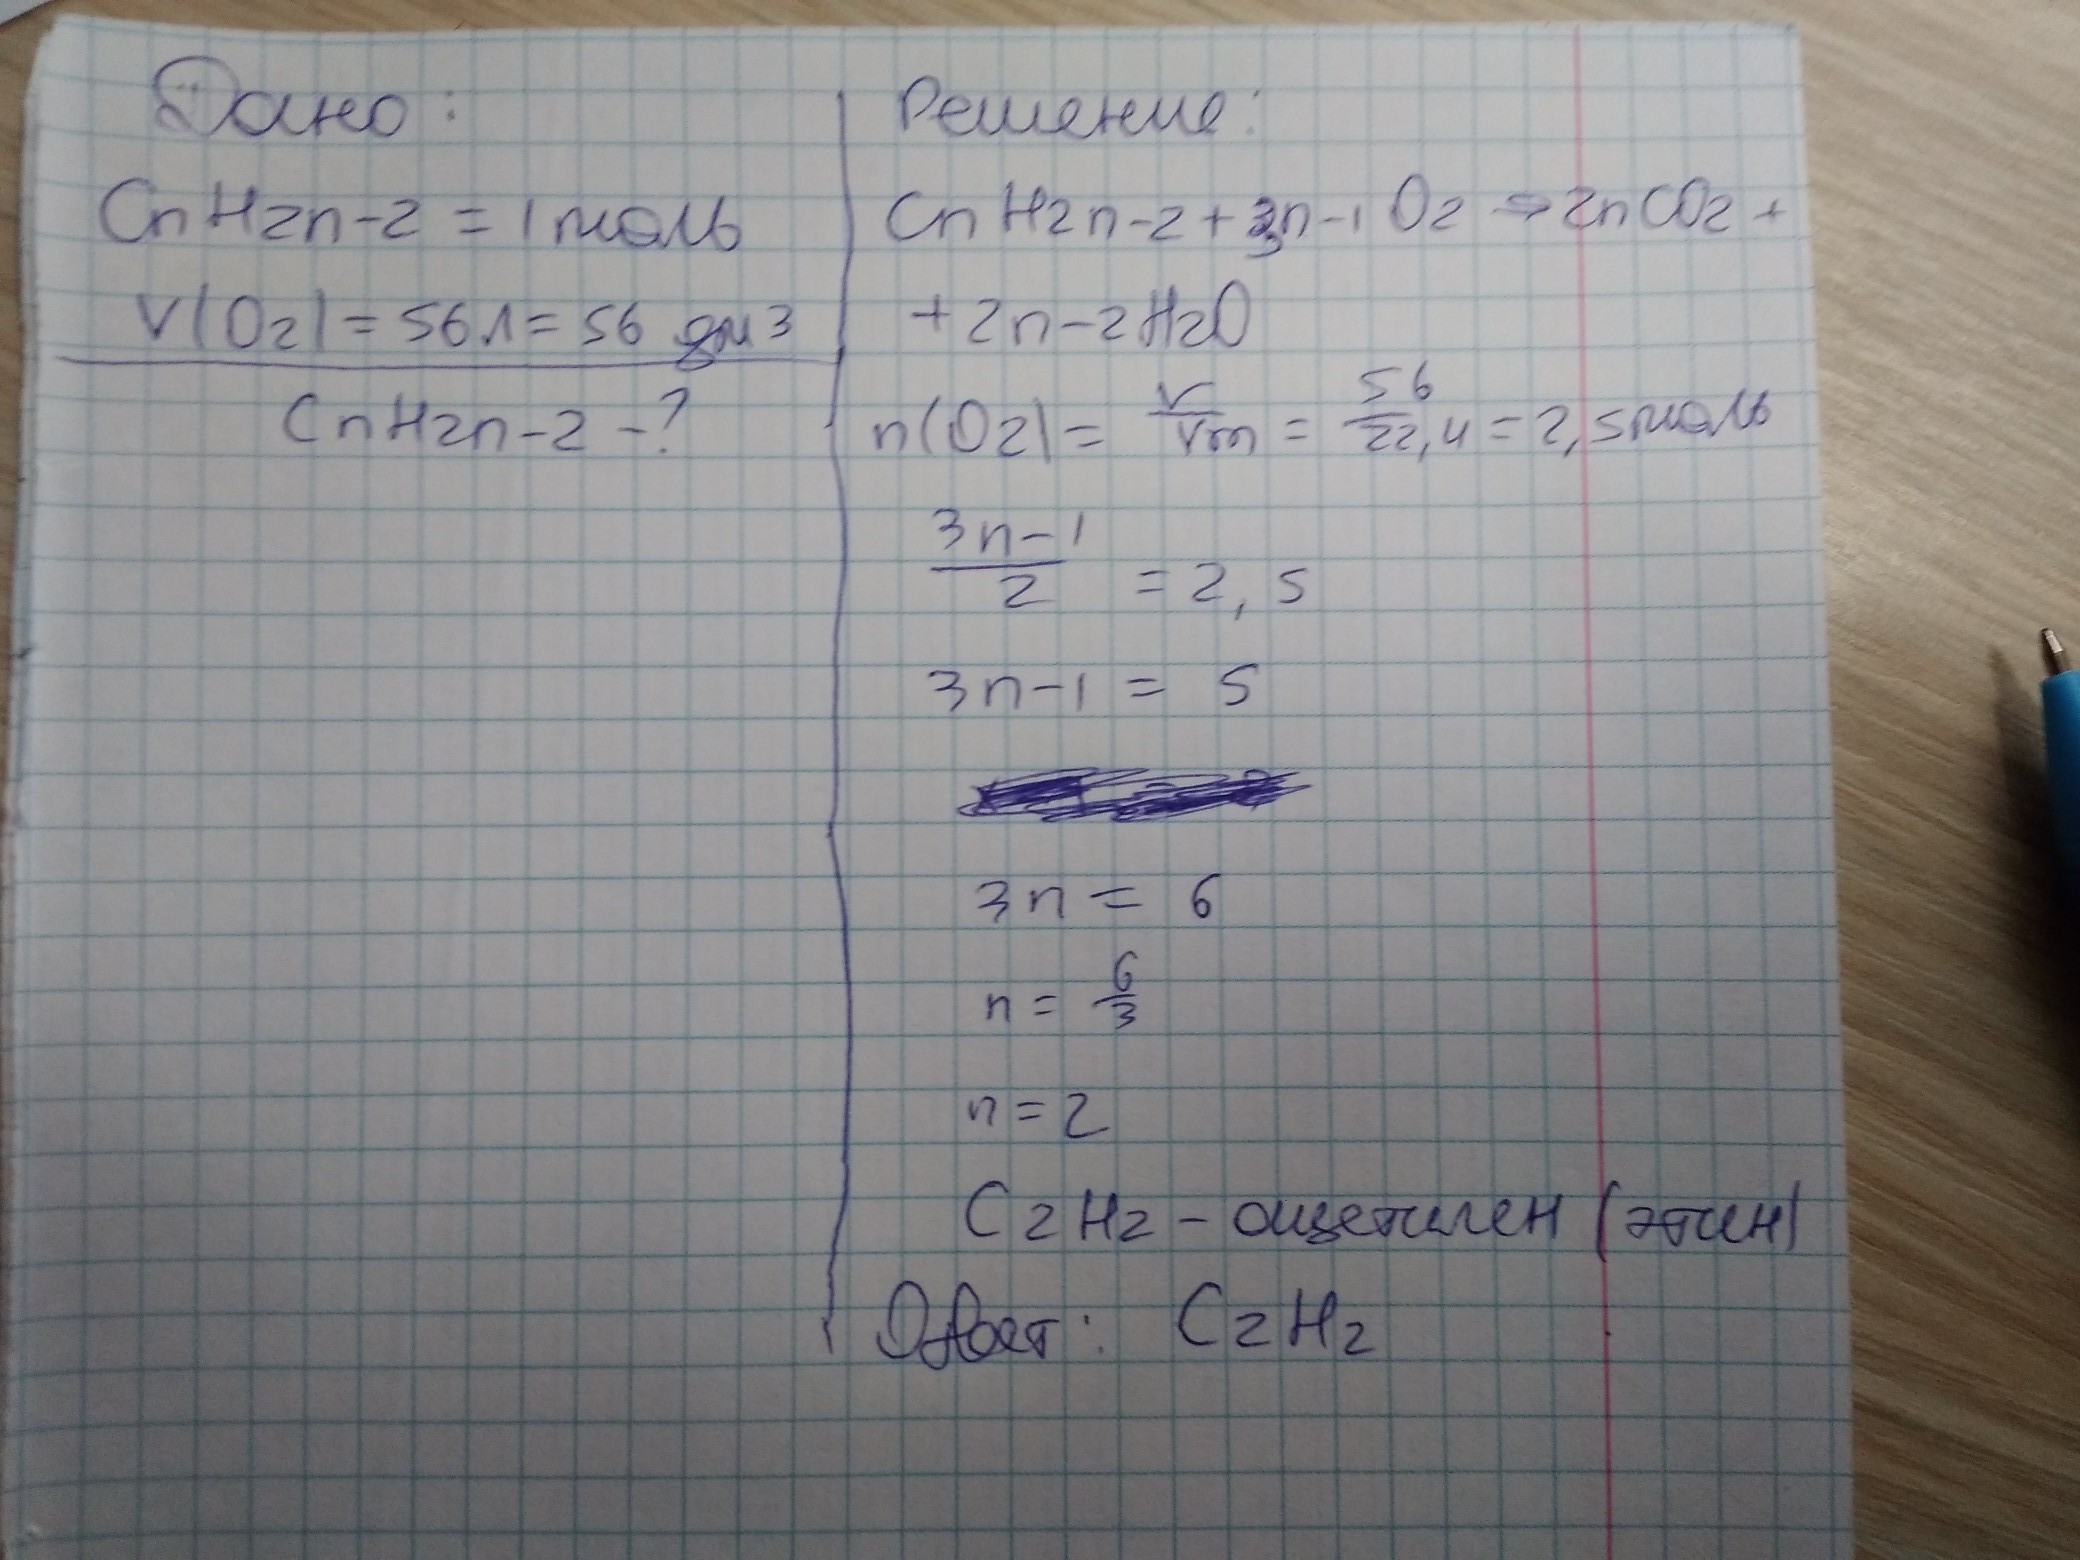 Дано:
CnH2n-2 = 1 моль
V(O2) = 56 л = 56 дм3
CnH2n-2 - ?
Решение:
CnH2n-2 + 3n-1 O2 → 2nCO2 +
+ 2n-2H2O
n(O2) = V/Vm = 56/22,4 = 2,5 моль
3n-1/2 = 2,5
3n-1 = 5
3n = 6
n = 6/3
n = 2
C2H2 - ацетилен (этин)
Ответ: C2H2